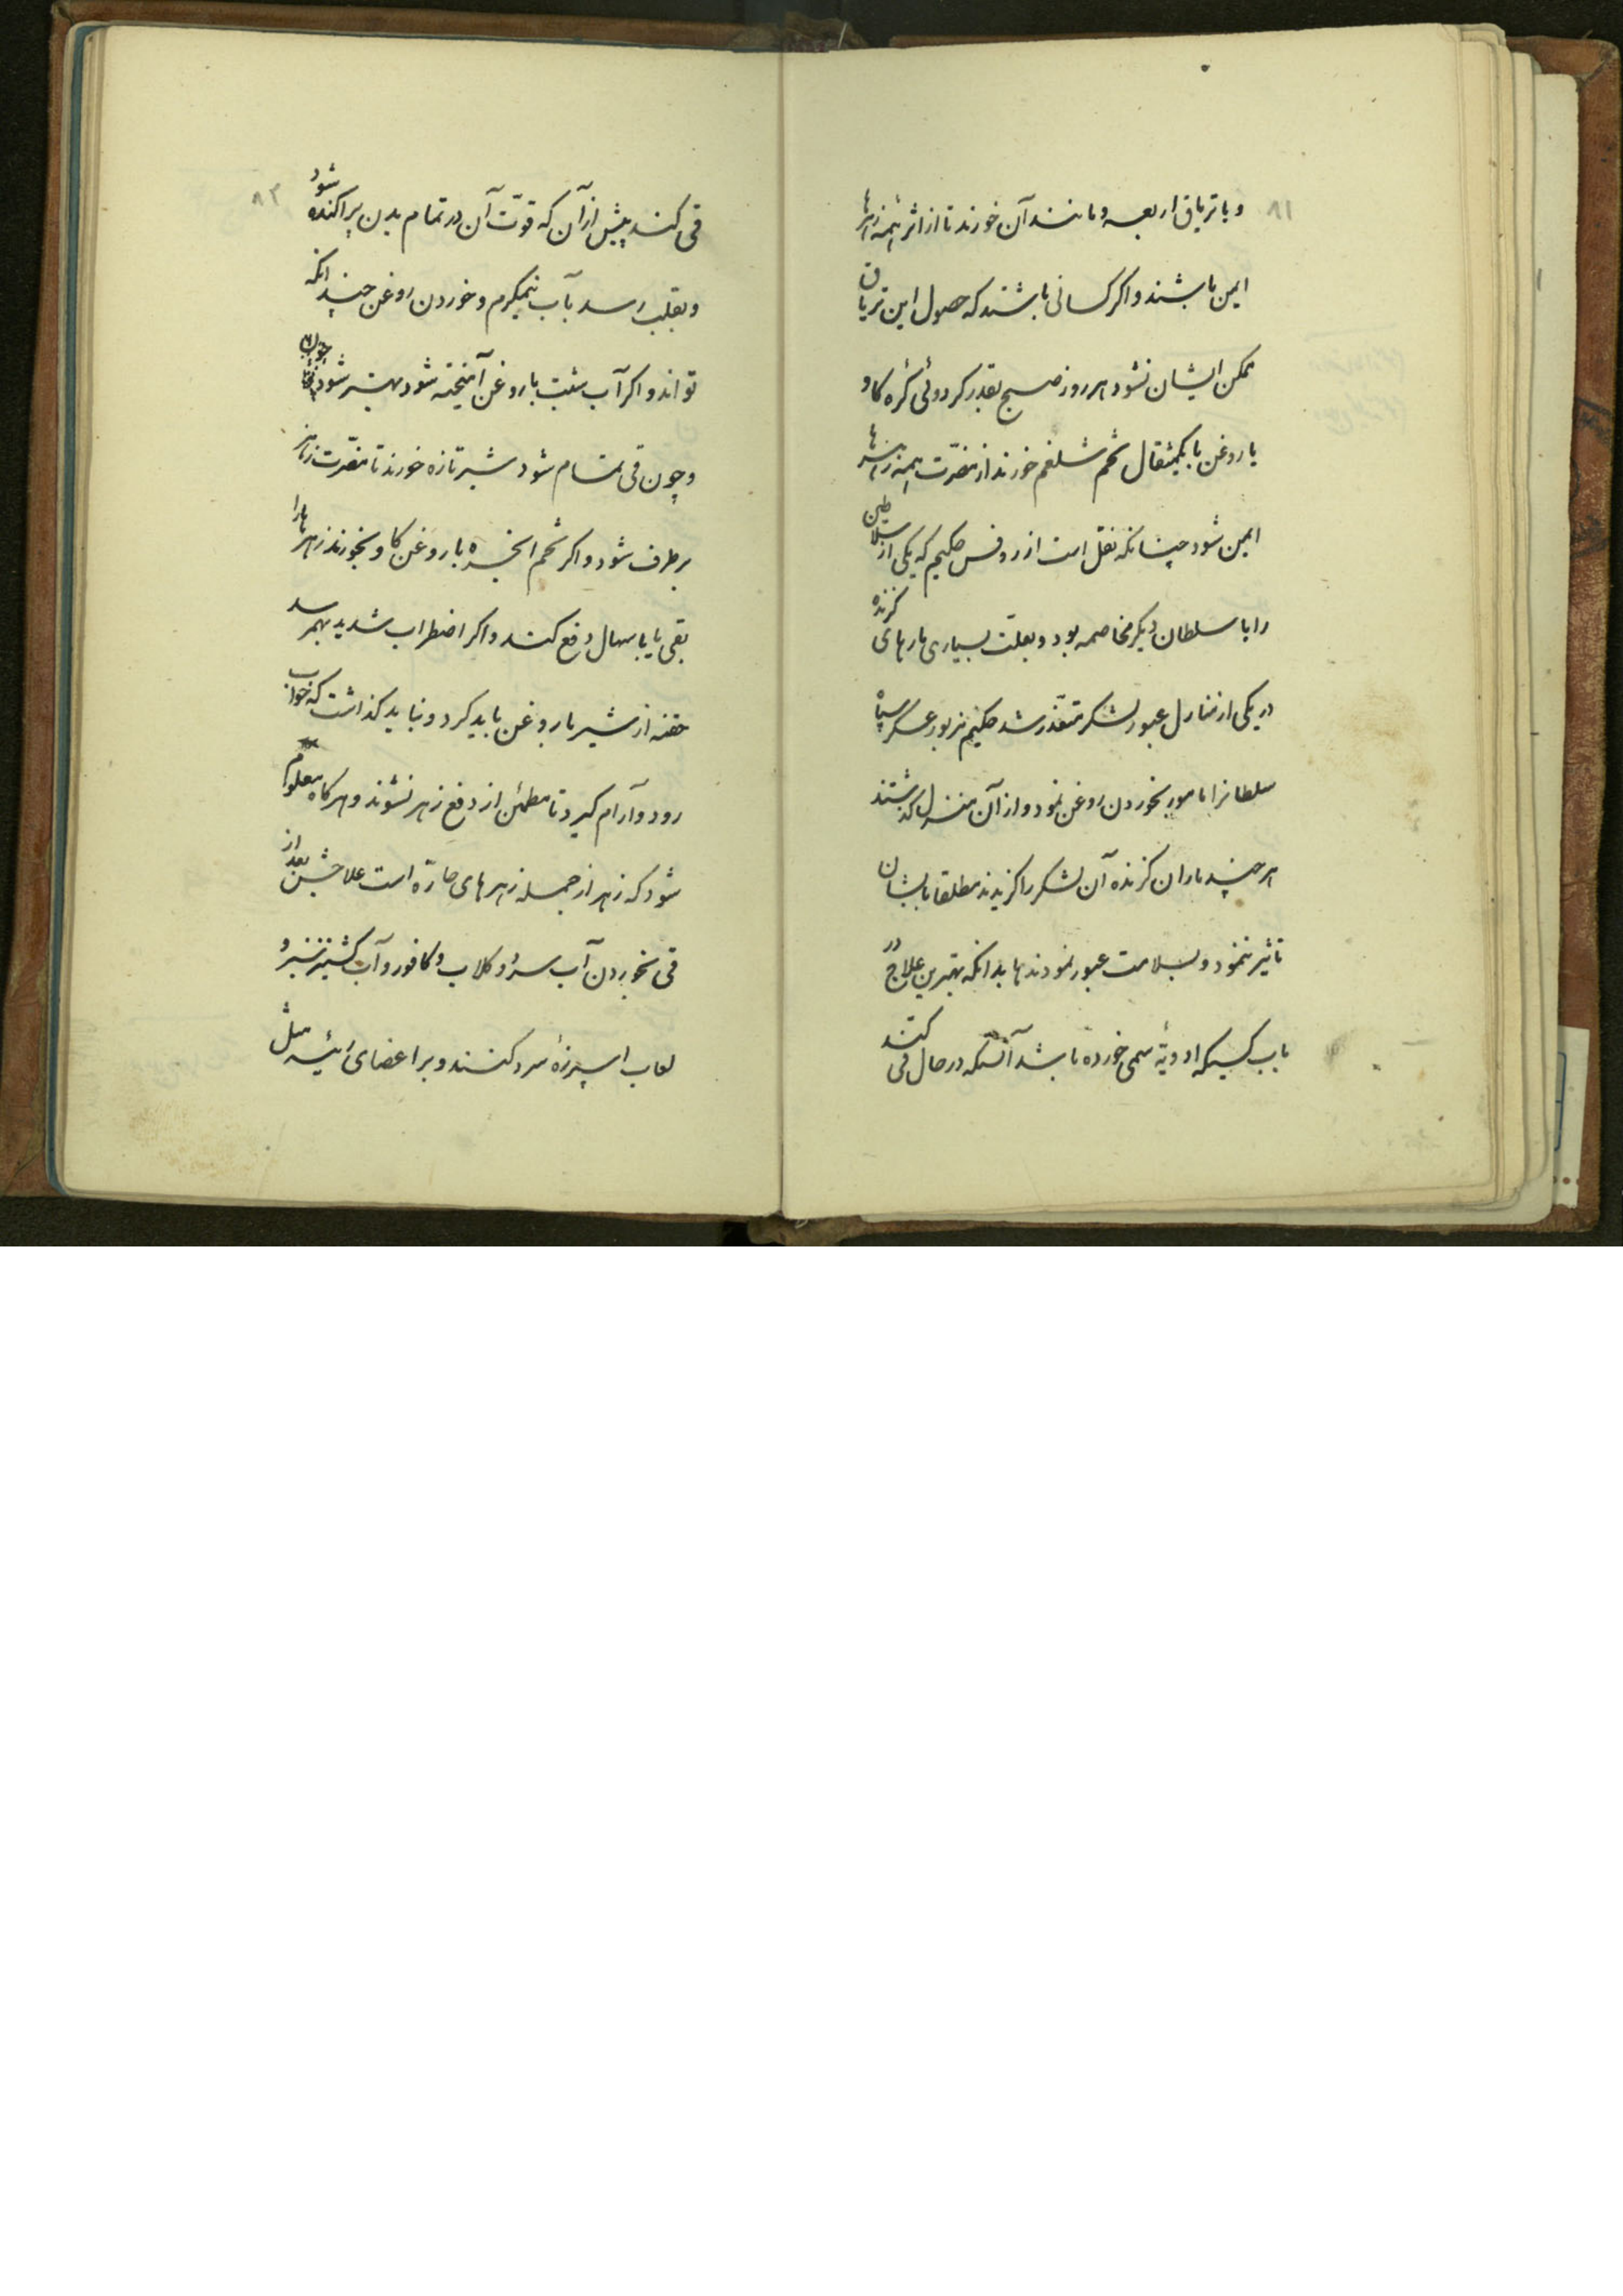 ۸۱
و یا تریاق اربعه و مانند آن خورند تا از اثر همه زهرها
ایمن باشند و اکر کسانی باشند که حصول این تریاق
ممکن ایشان نشود هر روز صبح بقدر کردوئی کره کاو
یا روغن با یکمثقال تخم شلغم خورند از مضرّت همه زهرها
ایمن شود چنانکه نقل است از روفس حکیم که یکی از سلاطین
را با سلطان دیکر مخاصمه بود و بعلّت بسیاری مارهای کزنده
در یکی از منازل عبور لشکر متعذّر شد حکیم مزبور عسکر سپاه
سلطانرا مامور بخوردن روغن نمود و از آن منزل کذشتند
هر چند ماران کزنده آن لشکر را کزیدند مطلقا بایشان
تاثیر ننمود و بسلامت عبور نمودند بدانکه بهترین علاج در
باب کسیکه ادویهٔ سمّی خورده باشد آنستکه در حال قی کنند
۸۲
قی کنند پیش از آن که قوّت آن در تمام بدن پراکنده شود
و بقلب رسد بآب نیمکرم و خوردن روغن چندانکه
تواند و اکر آب شبت با روغن آمیخته شود بهتر شود
و چون قی تمام شود شیر تازه خورند تا مضرّت زهر
برطرف شود و اکر تخم انجره با روغن کاو بخورند زهرها را
بقی یا باسهال دفع کند و اکر اضطراب شدید بهمرسد
حقنه از شیر با روغن باید کرد و نباید کذاشت که خواب
رود و آرام کیرد تا مطمئن از دفع زهر نشوند و هرکاه معلوم
شود که زهر از جمله زهرهای حارّه است علاجش بعد از
قی بخوردن آب سرد و کلاب و کافور و آب کشنیز سبز و
لعاب اسپرزهٔ سرد کنند و بر اعضای رئیسه مثل